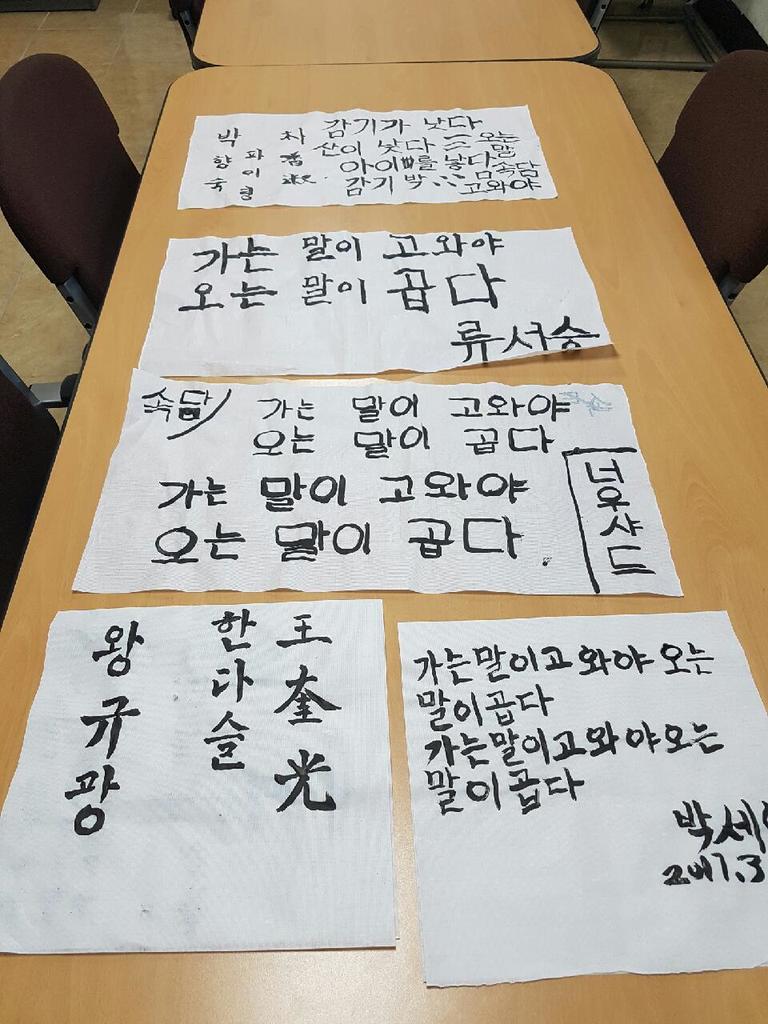 감기가 낫다
산이 낮다 오는
아이를 낳다 말
감기 박 속담
고와야
박향숙
파이형
차
가는 말이 고와야
오는 말이 곱다
류서승
속담
가는 말이 고와야
오는 말이 곱다
가는 말이 고와야
오는 말이 곱다
너우샤드
王奎光
한다슬
왕규광
가는말이고와야 오는
말이곱다
가는말이고와야오는
말이곱다
박세